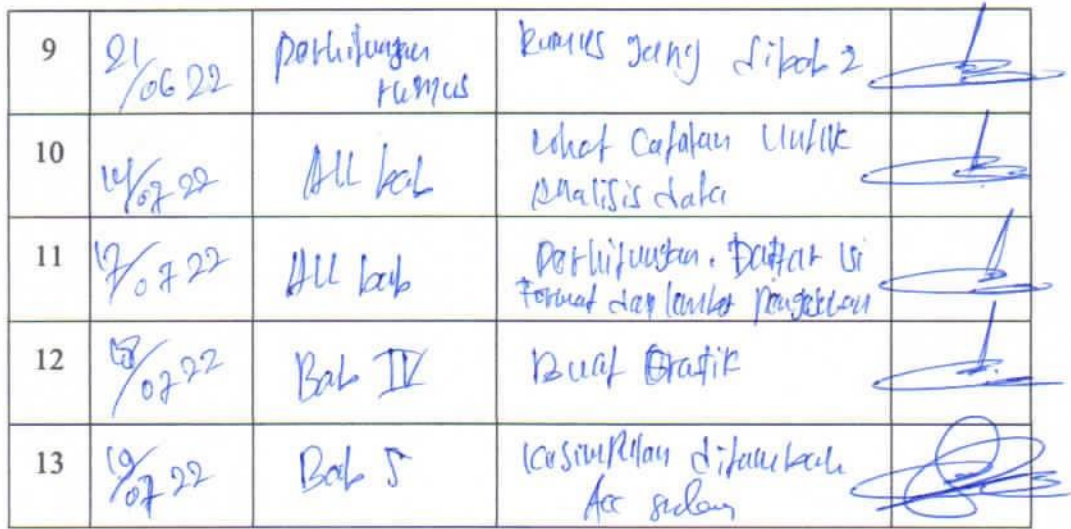 9 21/06 22 Perhitungan Rumus yang dibab 2
rumus
10 14/07 22 All bab Lihat Catatan Untuk
Analisis data
11 17/07 22 All bab Perhitungan. Daftar isi
Format dan lembar Pengesahan
12 18/07 22 Bab IV Buat Grafik
13 19/07 22 Bab 5 Kesimpulan ditambah
Acc sidang